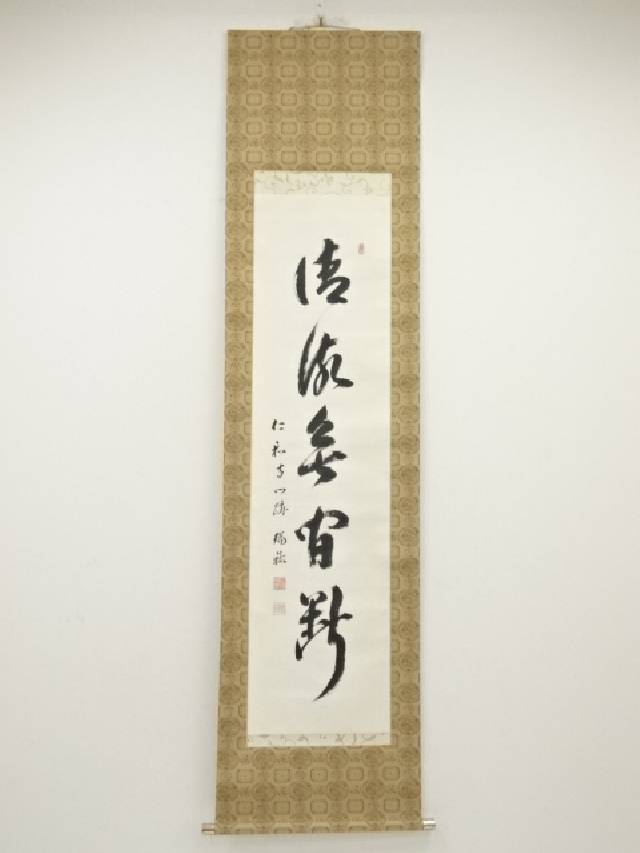 清流無間断
仁和寺門跡